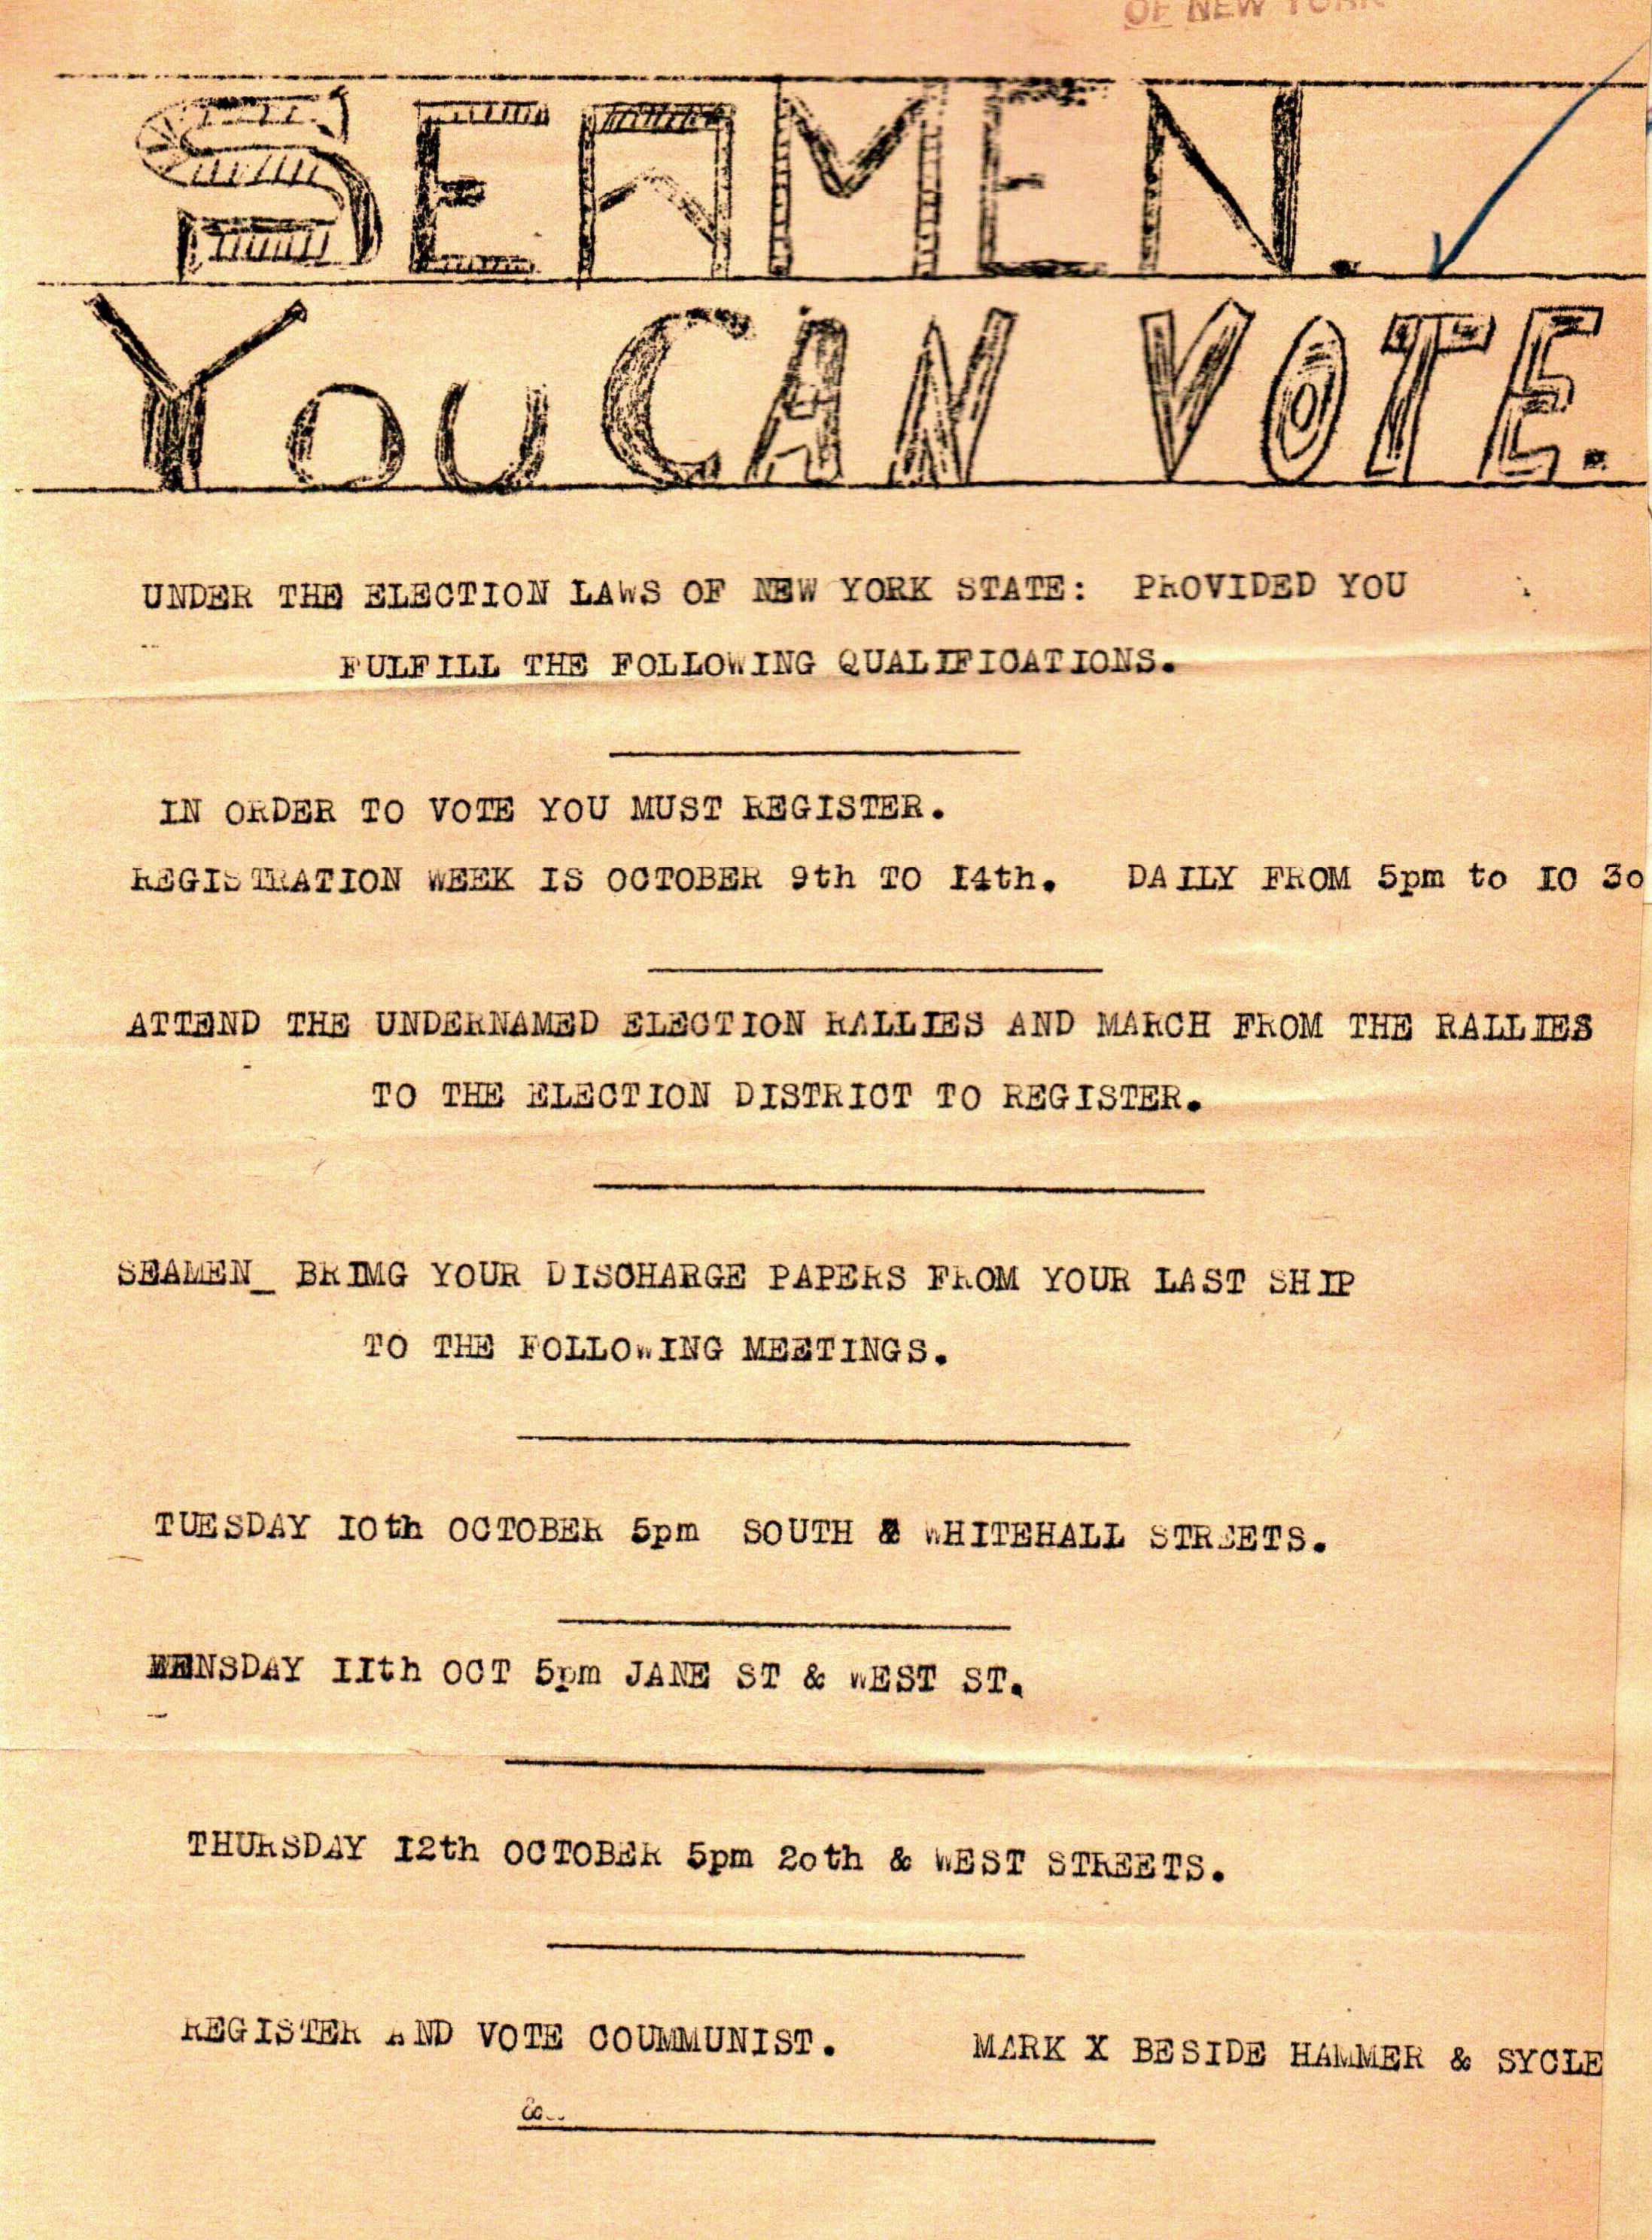 OF NEW YORK
SEAMEN.
YOU CAN VOTE.
UNDER THE ELECTION LAWS OF NEW YORK STATE: PROVIDED YOU
FULFILL THE FOLLOWING QUALIFICATIONS.
IN ORDER TO VOTE YOU MUST REGISTER.
REGISTRATION WEEK IS OCTOBER 9th TO I4th. DAILY FROM 5pm to IO 3o
ATTEND THE UNDERNAMED ELECTION RALLIES AND MARCH FROM THE RALLIES
TO THE ELECTION DISTRICT TO REGISTER.
SEAMEN_ BRIMG YOUR DISCHARGE PAPERS FROM YOUR LAST SHIP
TO THE FOLLOWING MEETINGS.
TUESDAY IOth OCTOBER 5pm SOUTH & WHITEHALL STREETS.
WENSDAY IIth OCT 5pm JANE ST & WEST ST.
THURSDAY I2th OCTOBER 5pm 2oth & WEST STREETS.
REGISTER AND VOTE COUMMUNIST. MARK X BESIDE HAMMER & SYCLE